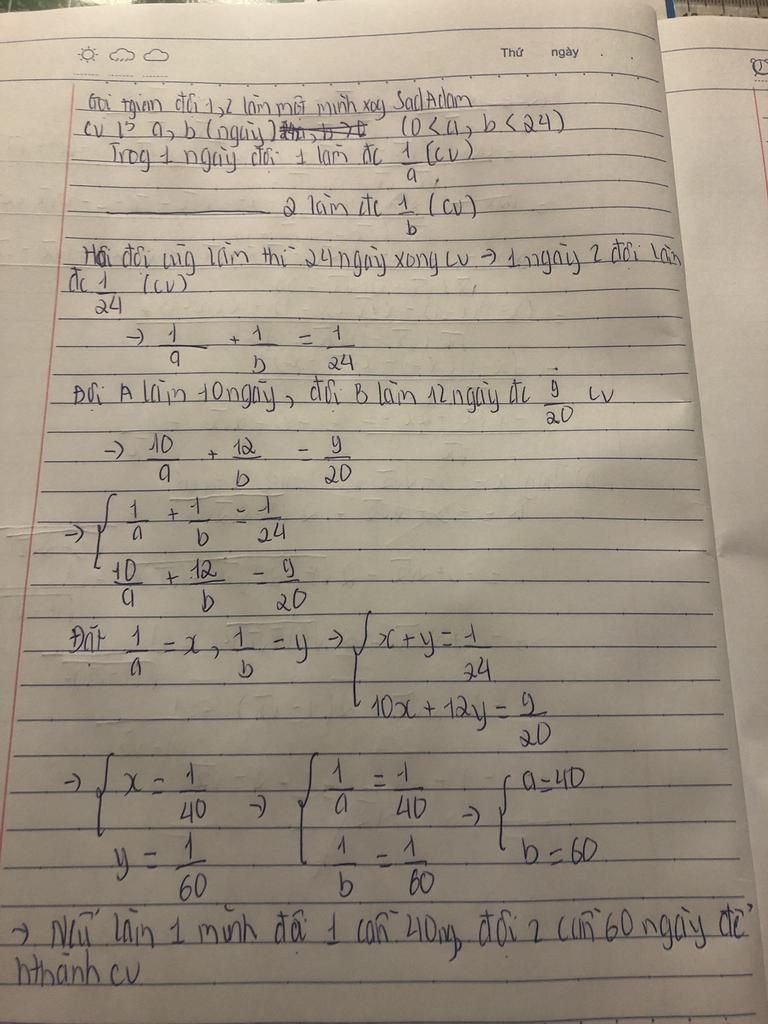 Thứ ngày
Gọi tgian đội 1, 2 làm một mình xog
cv là a, b (ngày) (0 < a, b < 24)
Trog 1 ngày đội 1 làm đc 1/a (cv)
2 làm đc 1/b (cv)
Hai đội cùg làm thì 24 ngày xong cv → 1 ngày 2 đội làm
đc 1/24 (cv)
→ 1/a + 1/b = 1/24
Đội A làm 10 ngày, đội B làm 12 ngày đc 9/20 cv
→ 10/a + 12/b = 9/20
→ { 1/a + 1/b = 1/24
10/a + 12/b = 9/20
Đặt 1/a = x, 1/b = y → { x + y = 1/24
10x + 12y = 9/20
→ { x = 1/40 → { 1/a = 1/40 → { a = 40
y = 1/60 1/b = 1/60 b = 60
→ Nếu làm 1 mình đội 1 cần 40 ng, đội 2 cần 60 ngày để
hthành cv